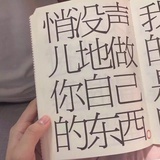 悄没声
儿地做
你自己
的东西。